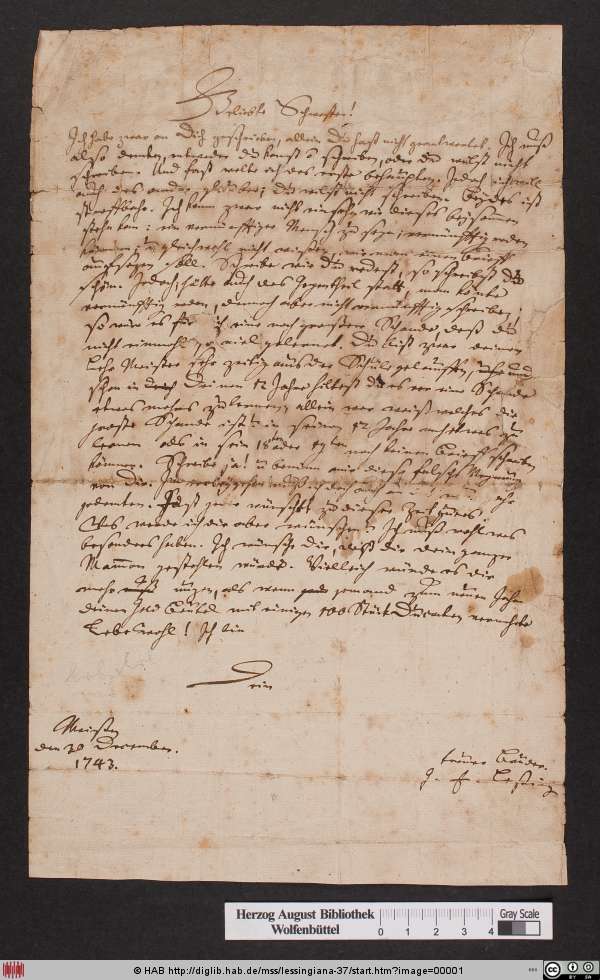 Geliebte Schwester!
Ich habe zwar an Dich geschrieben, allein Du hast nicht geantwortet. Ich muß
also dencken, entweder Du kanst o schreiben, oder Du wilst nicht
schreiben. Und fast wollte ich das erste behaupten. Jedoch ich will
auch das andre glauben; Du wilst nicht schreiben. Beydes ist
strafbahr. Ich kan zwar nicht einsehn, wie dieses beysammen
stehn kan: ein vernünfftiger Mensch zu seyn; vernünfftig reden
können; u gleichwohl nicht wissen, wie man einen Brieff
auffsetzen soll. Schreibe wie Du redest, so schreibst Du
schön. Jedoch, hätte auch das Gegentheil statt, man könte
vernünfftig reden, dennoch aber nicht vernünfftig schreiben;
so wär es für Dich eine noch größere Schande, daß Du
nicht einmahl so viel gelernet. Du bist zwar Deinem
Lehr Meister sehr zeitig aus der Schule gelauffen, und
schon in Deinem 12 Jahre hieltest Du es vor eine Schande
etwas mehres zu lernen; allein wer weiß welches die
gröste Schande ist? in seinem 12 Jahre noch etwas zu
lernen als in sein 18ten oder 19ten noch keinen Brieff schreiben
können. Schreibe ja! u benimm mir diese falsche Meynung
von Dir. Im vorbeygehen muß ich doch auch an das neue Jahr
gedencken. Fast jeder wünschet zu dieser Zeit gutes.
Was werde ich Dir aber wünschen? Ich muß wohl was
besonders haben. Ich wünsche Dir, daß Dir Dein ganzer
Mammon gestohlen würde. Vielleicht würde es Dir
mehr nüzen, als wenn jemand zum neuen Jahre
Deinen Geld Beutel mit einigen 100 Stück Ducaten vermehrte
Lebe wohl! Ich bin
Dein
Meißen
den 30 December.
1743.
treuer Bruder.
G. E. Leßing
Herzog August Bibliothek
Wolfenbüttel
0 1 2 3 4
Gray Scale
© HAB http://diglib.hab.de/mss/lessingiana-37/start.htm?image=00001